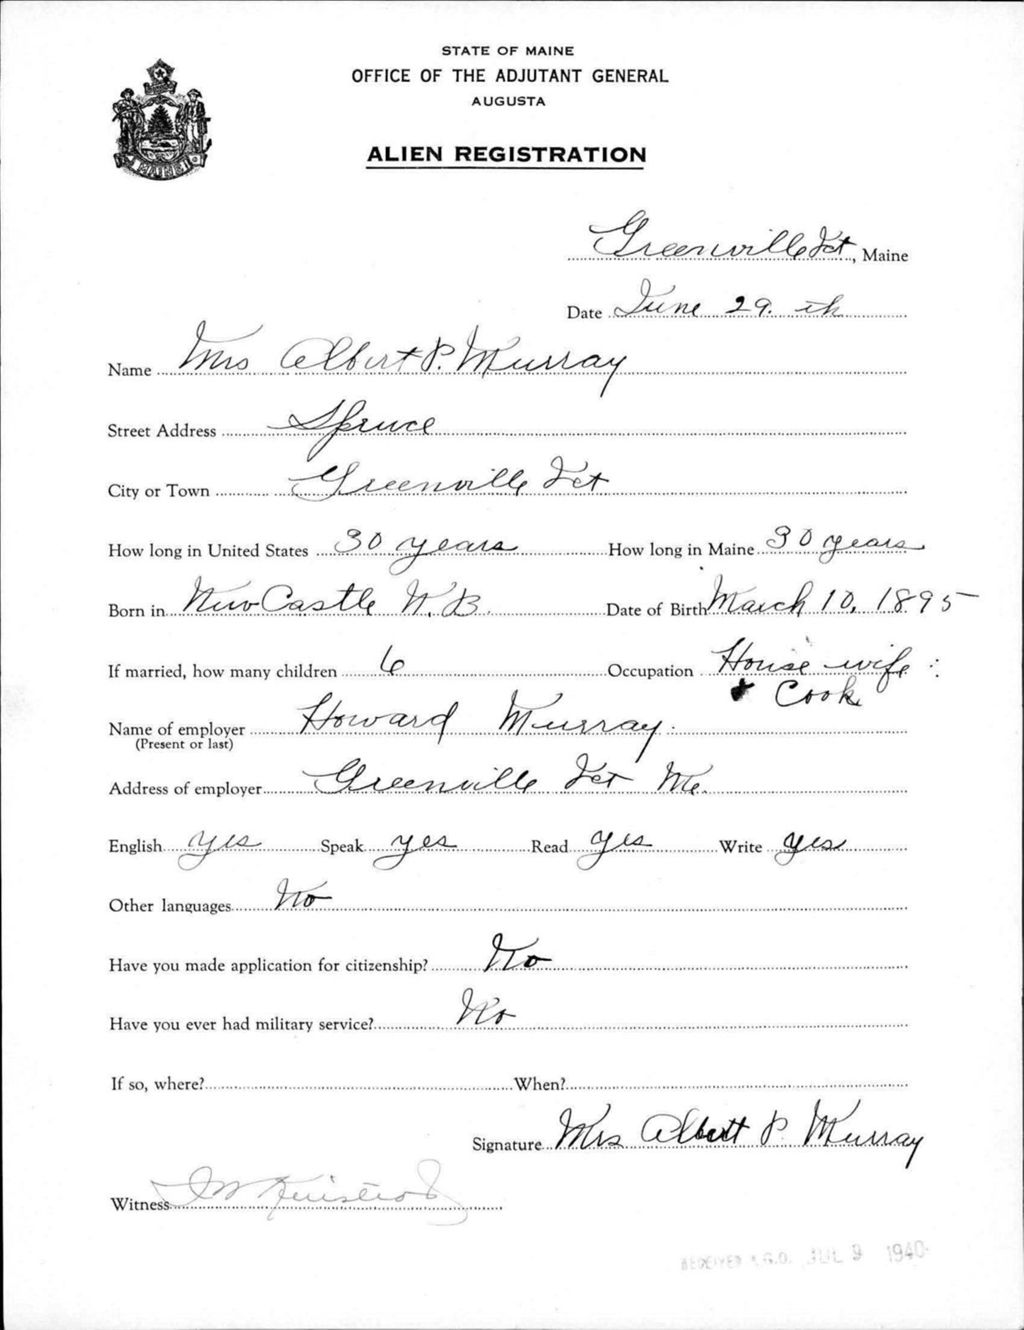 STATE OF MAINE
OFFICE OF THE ADJUTANT GENERAL
AUGUSTA
ALIEN REGISTRATION
MAINE
Greenville Jct, Maine
Date June 29. th
Name Mrs Albert P. Murray
Street Address Spruce
City or Town Greenville Jct
How long in United States 30 years How long in Maine 30 years
Born in New Castle N.B. Date of Birth March 10, 1895
If married, how many children 6 Occupation House wife
Cook
Name of employer Howard Murray
(Present or last)
Address of employer Greenville Jct Me.
English yes Speak yes Read yes Write yes
Other languages No
Have you made application for citizenship? No
Have you ever had military service? No
If so, where? When?
Signature Mrs Albert P Murray
Witness
RECEIVED A.G.O. JUL 9 1940